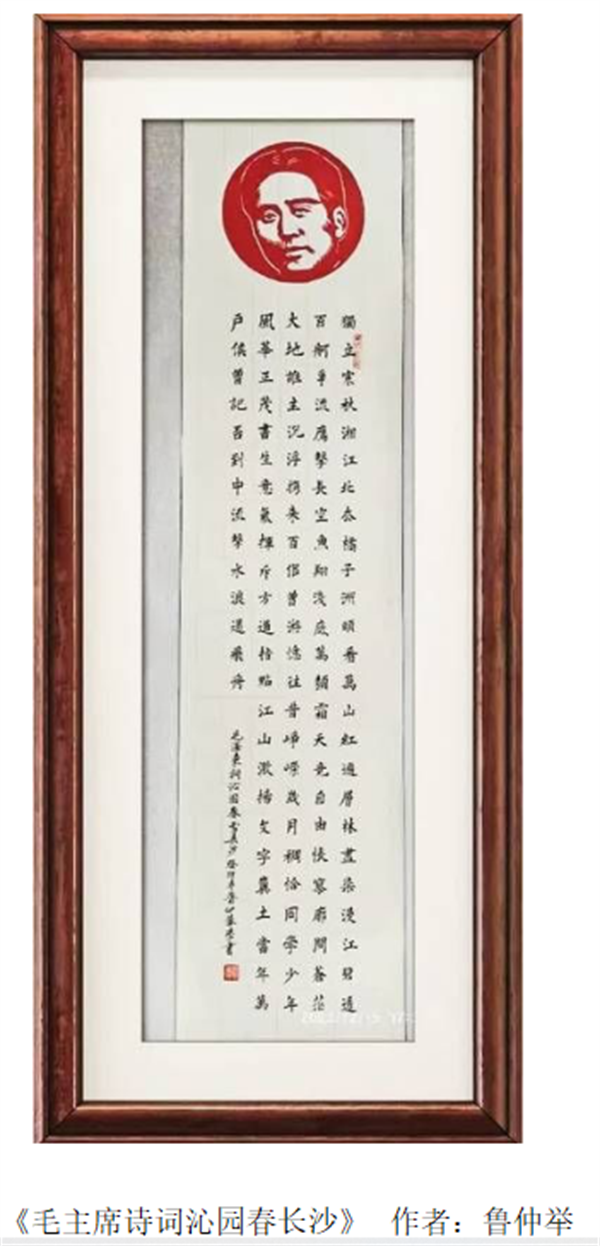 獨立寒秋湘江北去橘子洲頭看萬山紅遍層林盡染漫江碧透
百舸爭流鷹擊長空魚翔淺底萬類霜天競自由悵寥廓問蒼茫
大地誰主沉浮攜來百侶曾游憶往昔崢嶸歲月稠恰同學少年
風華正茂書生意氣揮斥方遒指點江山激揚文字糞土當年萬
戶侯曾記否到中流擊水浪遏飛舟
毛澤東詞沁園春長沙癸卯年魯仲舉書
《毛主席诗词沁园春长沙》 作者：鲁仲举